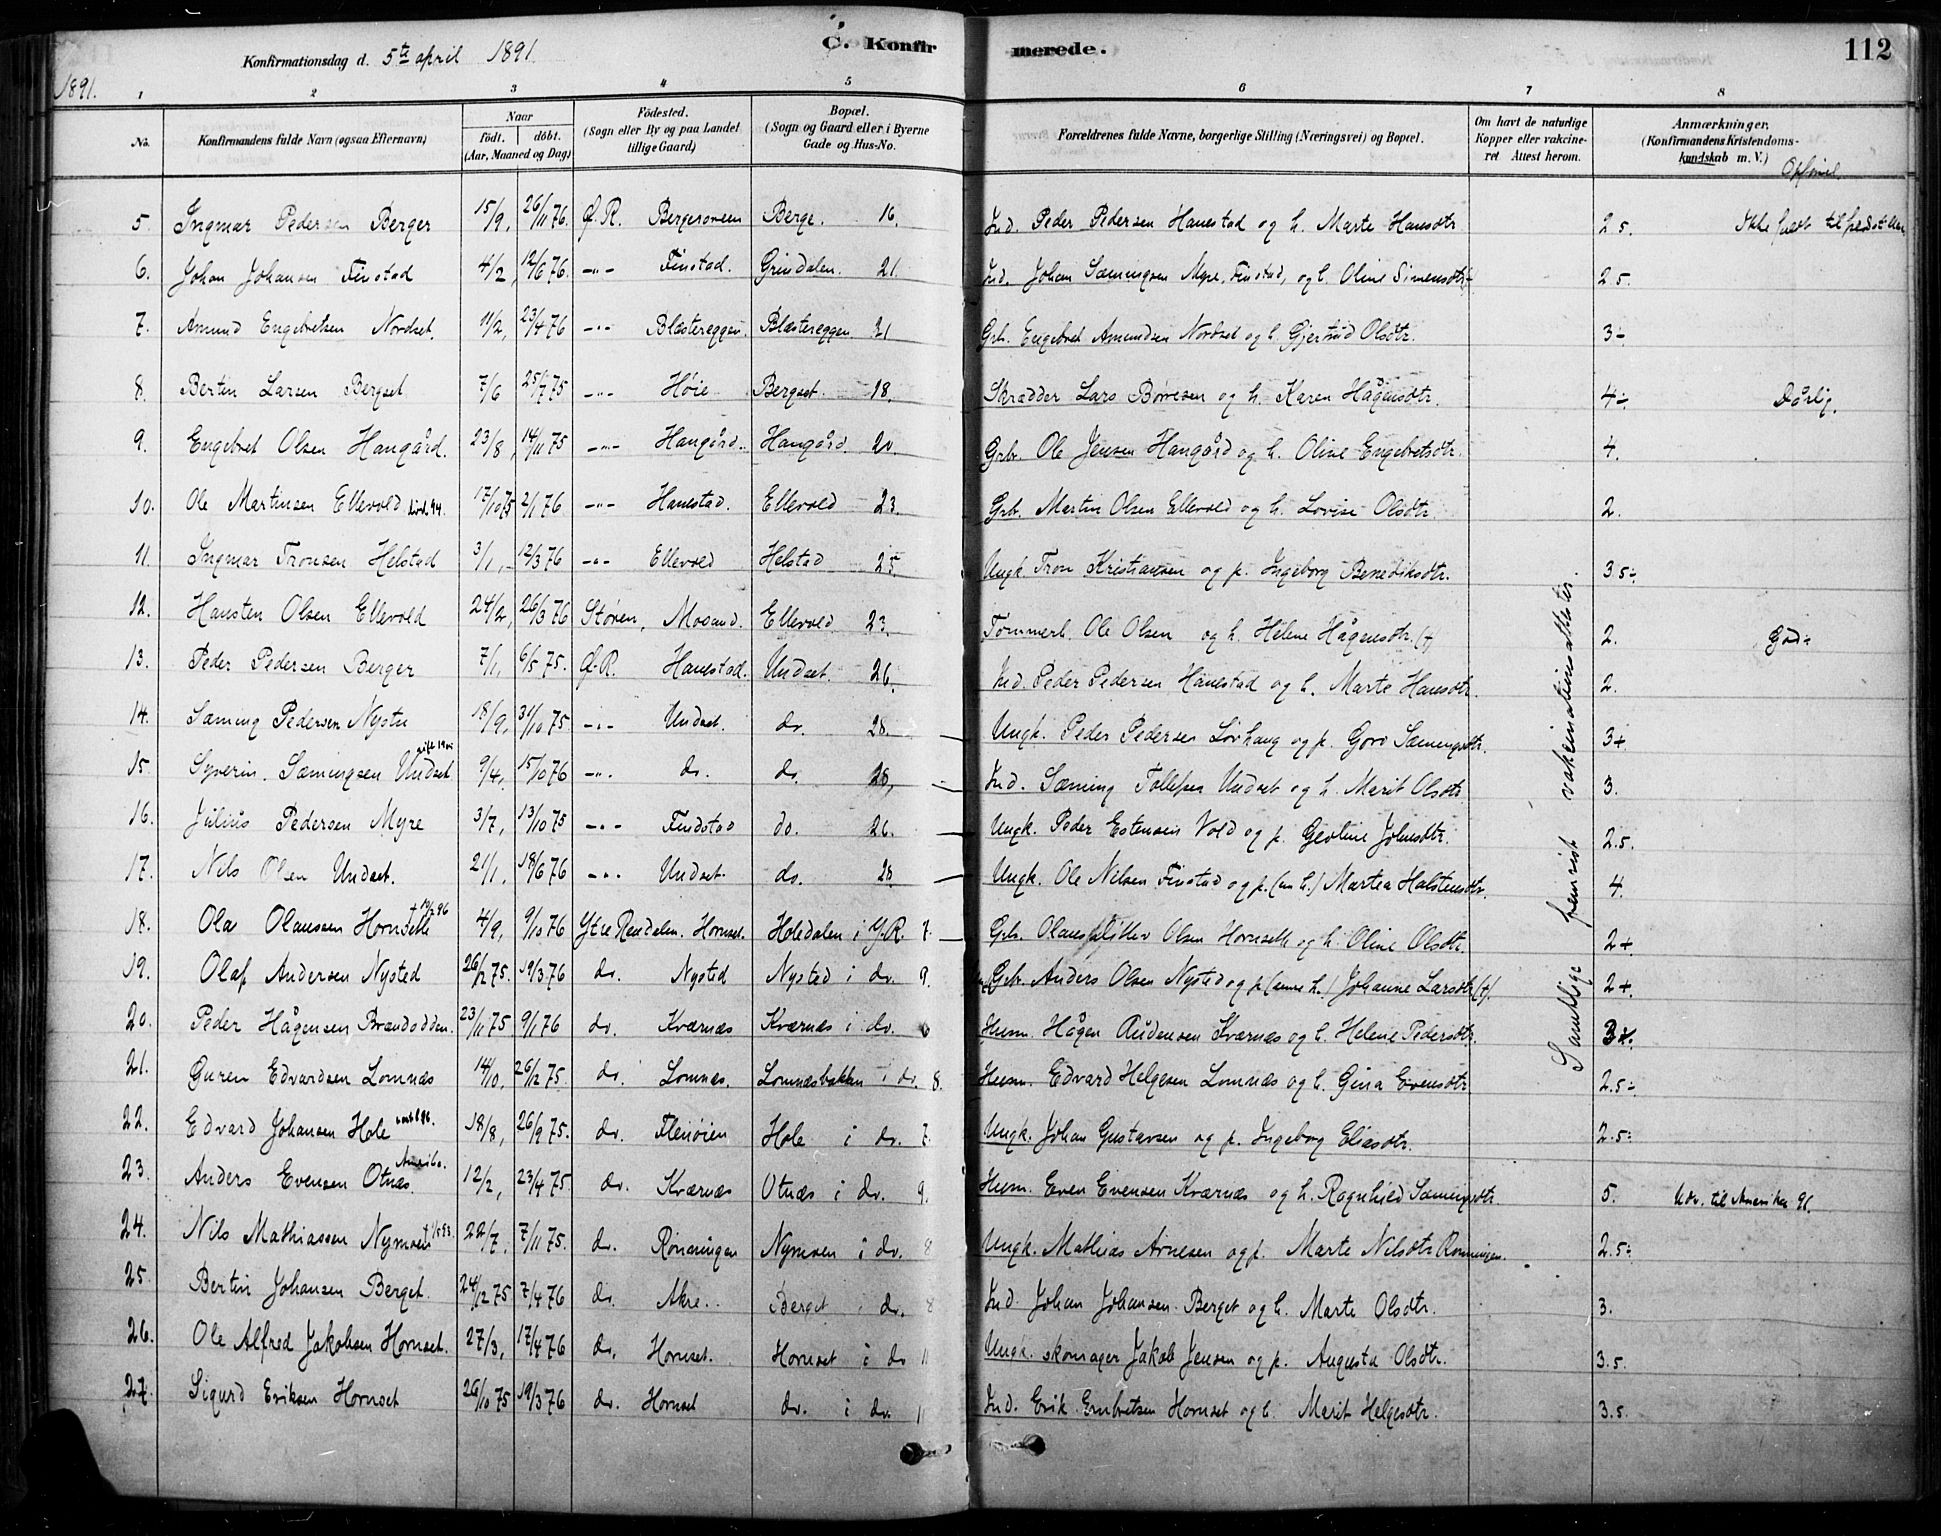 C. Konfirmerede. 112
Konfirmationsdag d. 5te april 1891.
1891. 1 2 3 4 5 6 7 8
No. Konfirmandens fulde Navn (ogsaa Efternavn) Naar født. døbt. (Aar, Maaned og Dag) Fødested. (Sogn eller By og paa Landet tillige Gaard) Bopæl. (Sogn og Gaard eller i Byerne Gade og Hus-No. Forældrenes fulde Navne, borgerlige Stilling (Næringsvei) og Bopæl. Om havt de naturlige Kopper eller vakcineret Attest herom. Anmærkninger. (Konfirmandens Kristendomskundskab m. V.)
Opførsel.
5. Ingmar Pedersen Berger 15/9, 26/11 76. Ø. R. Bergesoneen Berge. 16. Ind. Peder Pedersen Hanestad og h. Marte Hansdtr 2 5. Ikke født til
6. Johan Johansen Finstad 4/2, 12/6 76. -"- Finstad. Grindalen. 21. Ind. Johan Sæmingsen Myre, Finstad, og h. Oline Simensdtr 2 5.
7. Amund Engebretsen Nordset. 11/2, 23/4 76 -"- Blæstereggen. Blæstereggen 21 Grb. Engebret Amundsen Nordset og h. Gjertrud Olsdtr. 3-
8. Bertin Larsen Bergset 7/6 25/7 75 -"- Høie Bergset. 18. Skrædder Lars Børresen og h. Karen Hågensdtr. 4-. Dårlig.
9. Engebret Olsen Hangård. 23/8, 14/11 75 -"- Hangård. Hangård. 20. Grb. Ole Jensen Hangård og h. Oline Engebretsdtr. 4.
10. Ole Martinsen Ellevold død 94. 17/10 75 2/1 76 -"- Hanestad. Ellevold 23. Grb. Martin Olsen Ellevold og h. Lovise Olsdtr. 2.
11. Ingmar Tronsen Helstad 3/1, 12/3 76 -"- Ellevold Helstad 25. Ungk. Tron Kristiansen og p. Ingeborg Benediksdtr. 3 5-.
12. Hansten Olsen Ellevold 24/2, 26/3 76 Støren, Mosand. Ellevold 23. Tømmerl. Ole Olsen og h. Helene Hågensdtr. (+) 2. God-
13. Peder Pedersen Berger 7/1, 6/5 75. Ø. R. Hanestad. Undset. 26. Ind. Peder Pedersen Hanestad og h. Marte Hansdtr. 2.
14. Sæming Pedersen Nystu 18/9, 31/10 75 -"- Undset. do. 28 Ungk. Peder Pedersen Løvhaug og p. Goro Sæmingsdtr. 3+
15. Syverin Sæmingsen Undset gift 19 9/4, 15/10 76 -"- do. do. 28, Ind. Sæming Tollefsen Undset og h. Marit Olsdtr 3.
16. Julius Pedersen Myre 3/7, 13/10 75 -"- Findstad do. 26. Ungk. Peder Estensen Vold og p. Geoline Johnsdtr. 2.5.
17. Nils Olsen Undset. 21/1, 18/6 76 -"- Undset. do. 28. Ungk. Ole Nilsen Finstad og p. (nu h.) Martea Halstensdtr. 4.
18. Ola Olaussen Hornseth + 19/2 96 4/9, 9/10 76 Ytre Rendalen. Hornset. Holedalen i Y. R. 7. Grb. Olaus Ditlev Olsen Hornseth og h. Oline Olsdtr. 2+
19. Olaf Andersen Nysted 26/12 75. 19/3 76 do. Nysted Nysted i do. 9. Grb. Anders Olsen Nysted og p. (senere h.) Johanne Larsdtr (+). 2+.
20. Peder Hågensen Brandodden. 23/11 75 9/1 76 do. Kværnæs Kværnæs i do. 6 Husm. Hågen Audensen Kværnæs og h. Helene Pedersdtr. 3+.
21. Guren Edvardsen Lomnæs 14/10, 26/12 75. do. Lomnæs. Lomnæsbakken i do. 8. Husm. Edvard Helgesen Lomnæs og h. Gina Evensdtr 2.5-
22. Edvard Johansen Hole 96. 18/8, 26/9 75. do. Flenøien Hole i do. 7. Ungk. Johan Gustavsen og p. Ingeborg Eliasdtr. 2.5-
23. Anders Evensen Otnæs. Amerika. 12/2, 23/4 75. do. Kværnæs Otnæs i do. 9. Husm. Even Evensen Kværnæs og h. Ragnhild Sæmingsdtr. 5. Udv. til Amerika 91.
24. Nils Mathiassen Nymoen 22/7, 7/11 75. do. Rønningen Nymoen i do. 8 Ungk. Mathias Arnesen og p. Marte Nilsdtr Rønningen. 2.5-
25. Bertin Johansen Berget. 24/12 75 7/4 76 do. Akre. Berget i do. 8 Ind. Johan Johansen Berget og h. Marte Olsdtr. 3.
26. Ole Alfred Jakobsen Hornset. 27/3, 17/4 76 do. Hornset. Hornset i do 11 Ungk. skomager Jakob Jensen og p. Augusta Olsdtr. 3.5.
27. Sigurd Eriksen Hornset 26/10 75 19/3 76 do. Hornset do. i do. 11 Ind. Erik Embretsen Hornset og h. Marit Helgesdtr. 3.5.
Samtlige fremvist vakcinationsattester.